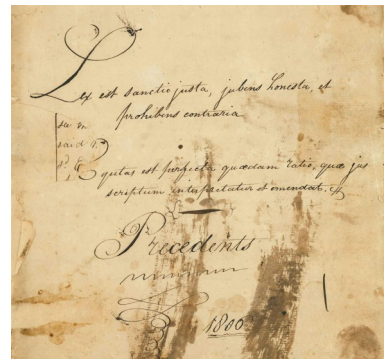 Lex est sanctio justa, jubens honesta, et
prohibens contraria
said
Equitas est perfecta quædam ratio, quæ jus
scriptum interpretatur et emendat, &
Precedents
1800